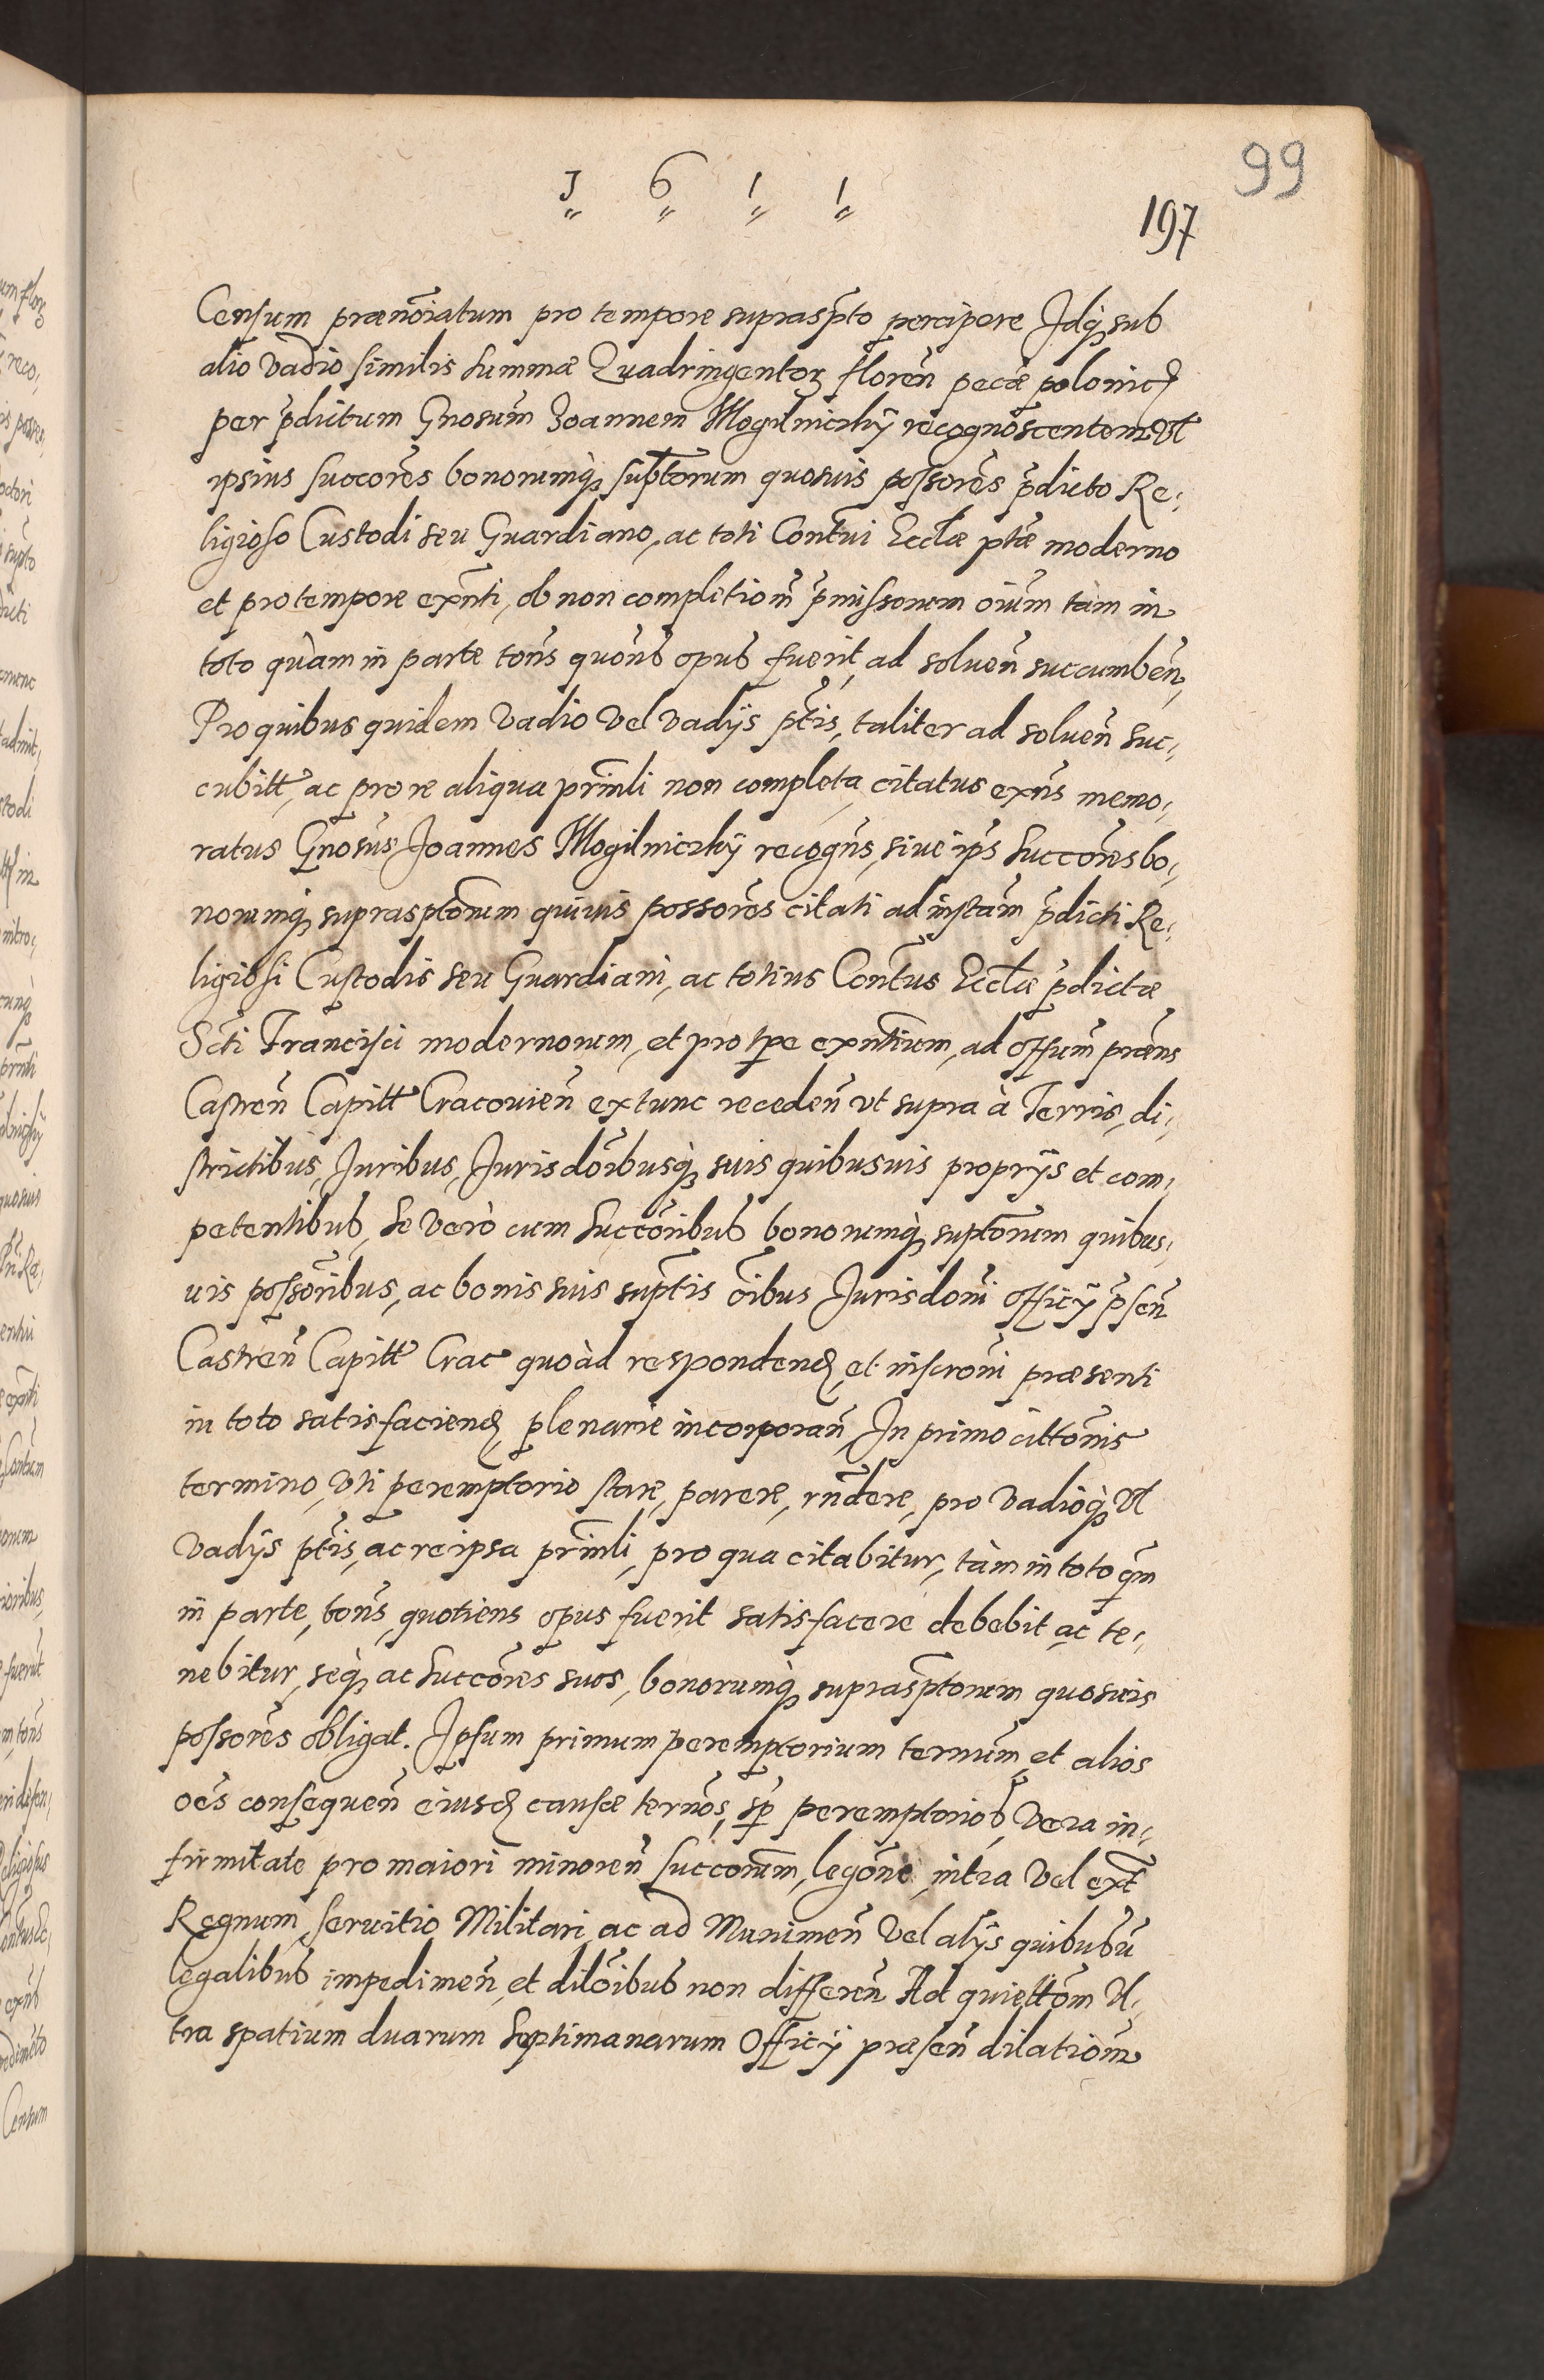 99
1611
197
Censum prænoīatum pro tempore suprasp̄to percipere Jdq̨ sub
alio vadio similis summæ Quadringentoꝝ floreñ pecæ polonic̨
per p̄dictum Gnosum̄ Joannem Mogilniczkÿ recognoscentem Vl
ipsius succores̄ bonorumq̨ sup̄torum quosuis possores̄ p̄dicto Re,
ligioso Custodi seu Guardiano, ac toti Contūi Eccl̄æ p̄tæ moderno
et pro tempore exn̄ti, ob non completiom̄ p̄missorum oīum tàm in
toto quàm in parte tōns quōns opus fuerit, ad soluen̄ succumben̄,
Pro quibus quidem vadio Vel vadijs p̄tis, taliter ad soluen̄ suc,
cubitt, ac pro re aliqua prin̄li non completa citatus exn̄s memo,
ratus Gnosus̄ Joannes Mogilniczkÿ recogn̄s, siue ip̄s succores̄ bo,
norumq̨ suprasp̄torum quiuis possores̄ citati ad instam̄ p̄dicti Re,
ligiosi Custodis seu Guardiani, ac totius Contūs Eccl̄æ p̄dictæ
Scti Francisci modernorum, et pro tpe exn̄tium, ad offum̄ præn̄s
Castren̄ Capitt Cracouien̄ extunc receden̄ vt supra à Terris, di,
strictibus, Juribus, Jurisdoībusq̨ suis quibusuis proprijs et com,
petentibus, se verò cum succoribus̄ bonorumq̨ sup̄torum quibus,
uis possoribus̄, ac bonis suis sup̄tis oībus Jurisdoni̅ officij p̄sen̄
Castren̄ Capitt Crac quoàd respondend̨, et inscroni̅ præsenti
in toto satisfaciend̨ plenarie incorporan̄, In primo cittonis̄
termino, vti peremptorio stare, parere, rn̄dere, pro vadioq̨ Vl
vadijs p̄tis, ac re ipsa prin̄li, pro qua citabitur, tàm in toto qm̄
in parte, tōns, quotiens opus fuerit satisfacere debebit, ac te,
nebitur, seq̨ ac succores̄ suos, bonorumq̨ suprasp̄torum quosuis
possores̄ obligat. Jpsum primum peremptorium termūm, et alios
oēs consequen̄ eiusd̨ causæ termōs, sp̄ peremptorios, Vera in,
firmitate pro maiori minoren̄ succorum̄, legōne intra Vel ext̄
Regnum, seruitio Militari ac ad Munimen̄ Vel alijs quibusū
legalibus impedimen̄, et diloībus non differen̄ Ad quiettom̄ Vl,
tra spatium duarum septimanarum Officij præsen̄ dilatiom̄